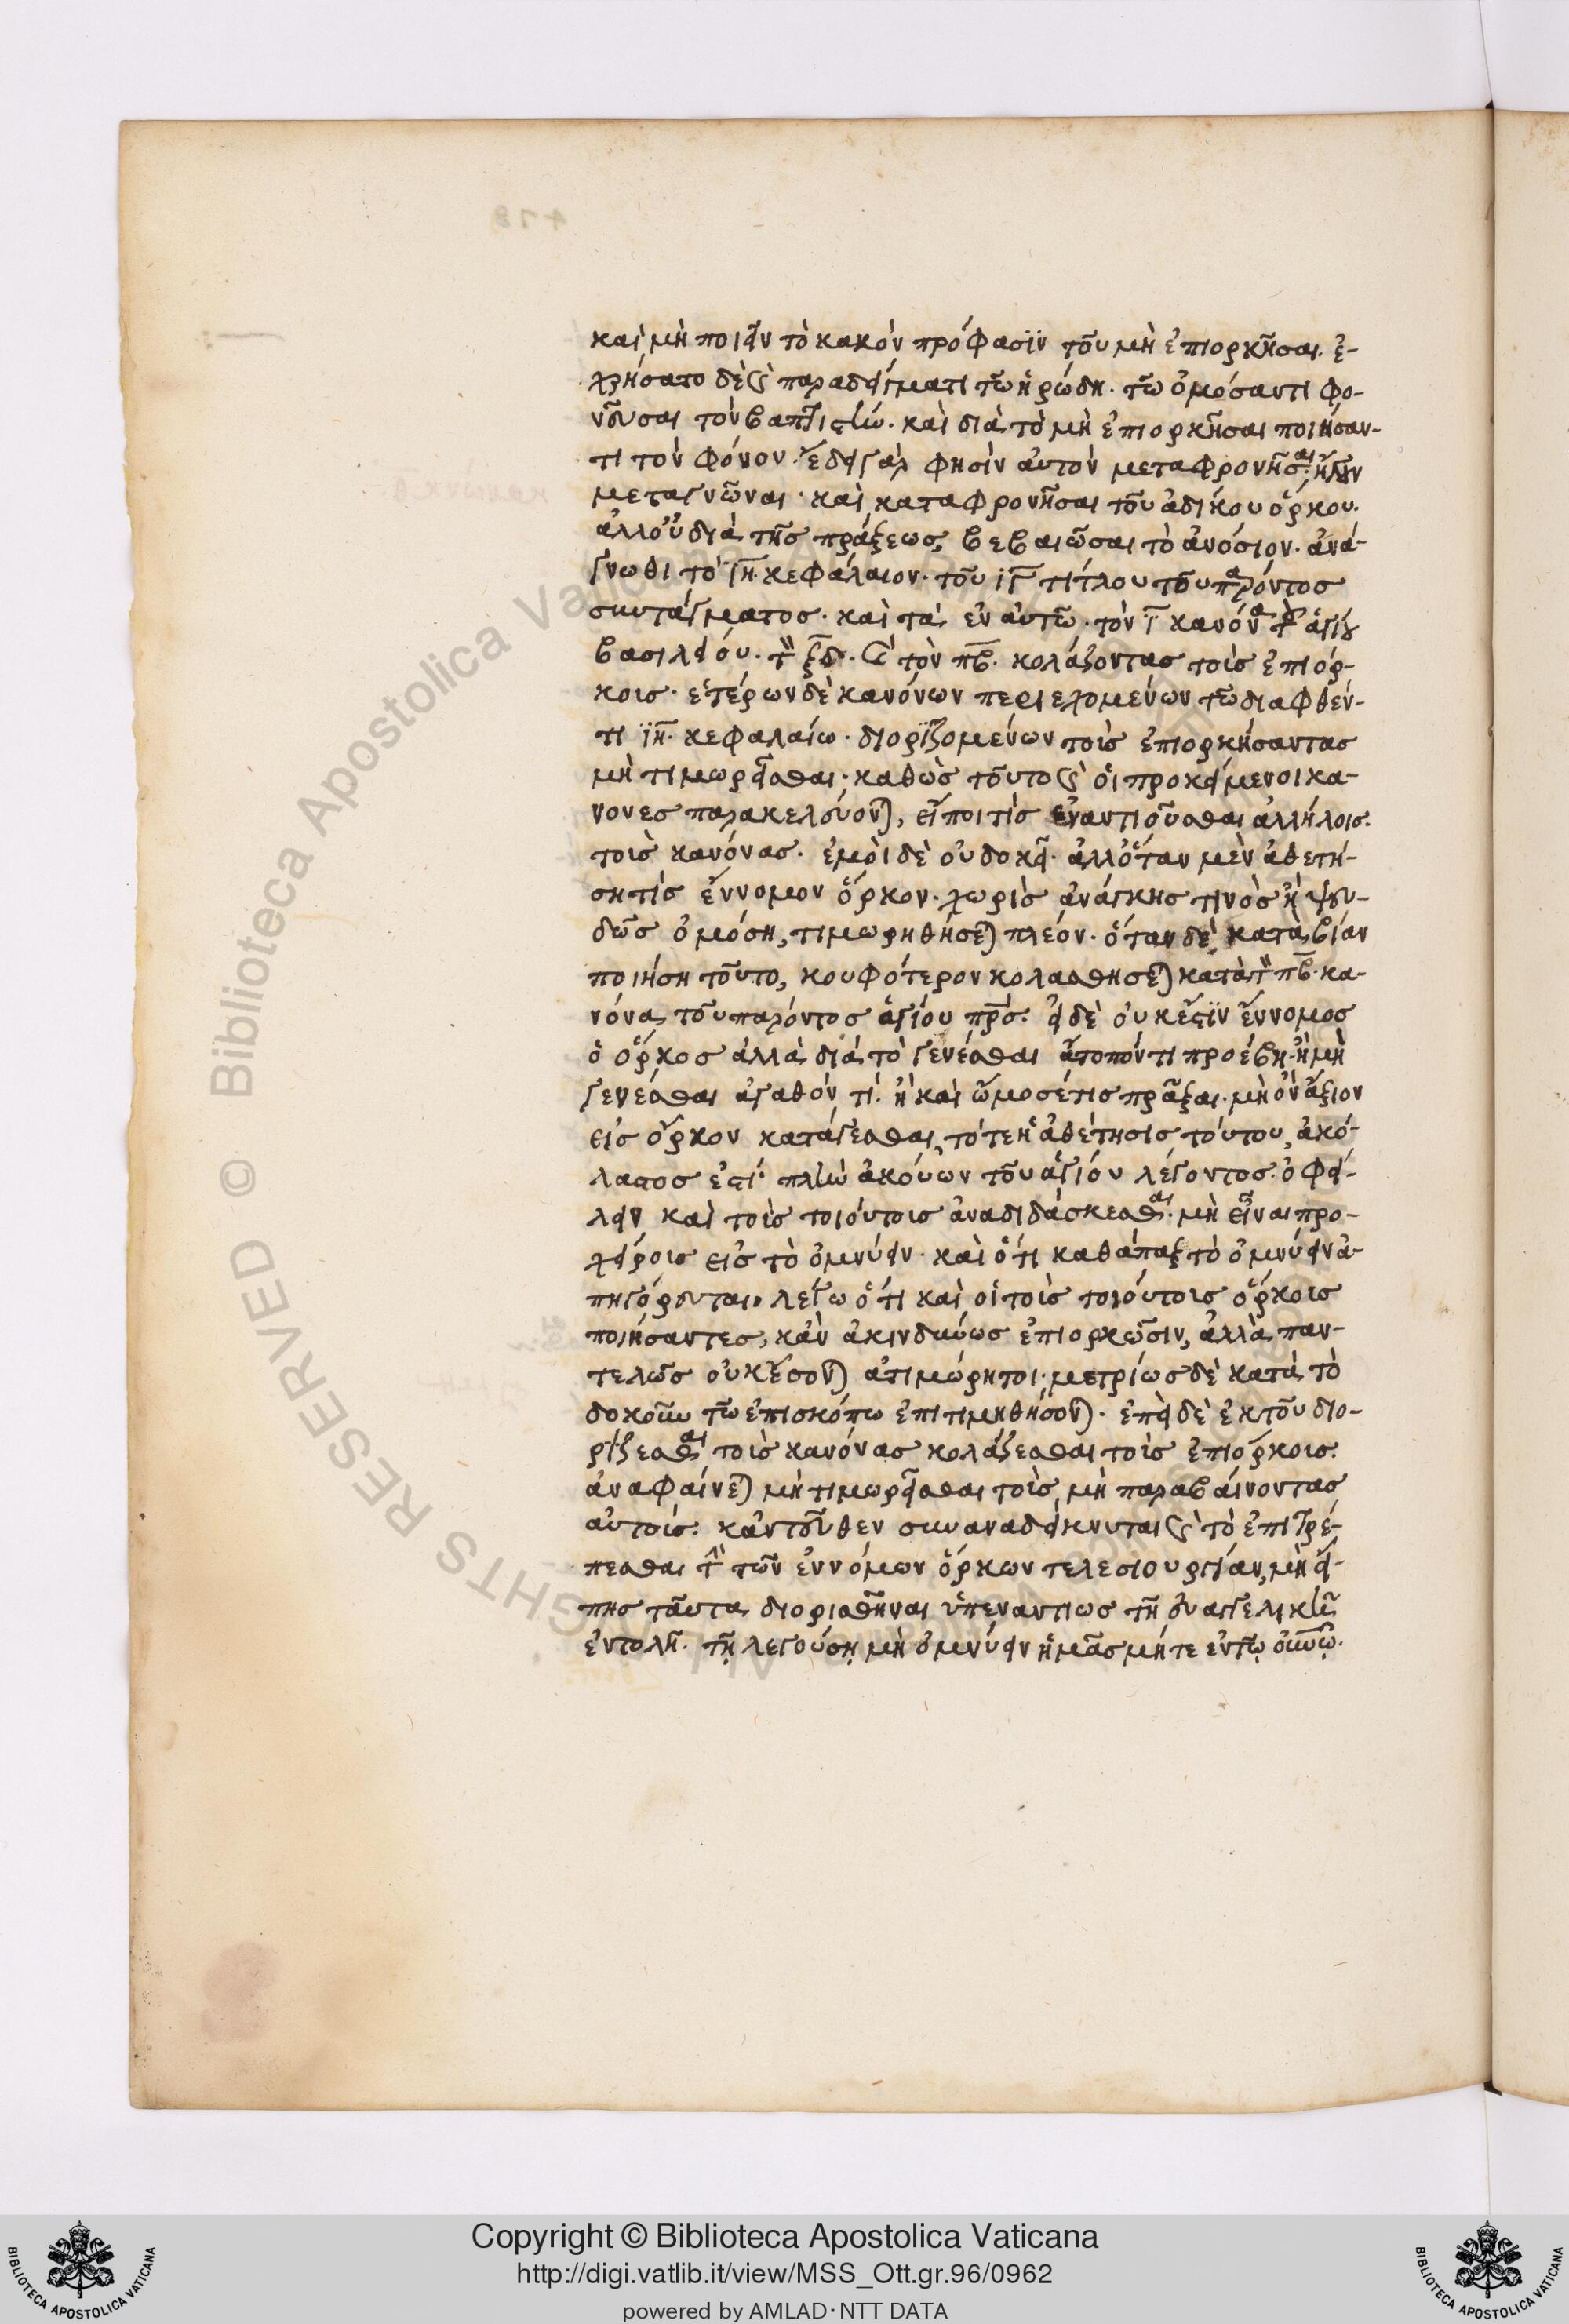 καὶ μὴ ποιεῖν τὸ κακὸν πρόφασϊν τοῦ μὴ ἐπιορκῆσαι. ἐ-
χρήσατο δὲ καὶ παραδείγματι τῶ ἡρώδη. τῶ ὀμόσαντι φο-
νεῦσαι τὸν βαπτιστήν. καὶ διὰ τὸ μὴ ἐπιορκῆσαι ποιήσαν-
τι τὸν φόνον. ἔδει γὰρ φησὶν αὐτὸν μεταφρονῆσαι. ἤγουν
μεταγνῶναι. καὶ καταφρονῆσαι τοῦ ἀδίκου ὅρκου.
ἀλλ' οὐ διὰ τῆς πράξεως βεβαιῶσαι τὸ ἀνόσιον. ἀνά-
γνωθι τὸ ιη. κεφάλαιον. τοῦ ιγ τίτλου τοῦ παρόντος
συντάγματος. καὶ τὰ ἐν αὐτῶ. τὸν ι κανόνα τοῦ ἁγίου
βασιλείου. τὸν ξδ. καὶ τὸν πβ. κολάζοντας τοὺς ἐπιόρ-
κους. ἑτέρων δὲ κανόνων περιεχομένων τῶ διαφθέν-
τι ϊη. κεφαλαίω. διορϊζομένων τοὺς ἐπιορκήσαντας
μὴ τιμωρεῖσθαι. καθὼς τοῦτο καὶ οἱ προκείμενοι κα-
νονες παρακελεύονται, εἴποι τὶς ἐναντιοῦσθαι ἀλλήλοις.
τοὺς κανόνας. ἐμοὶ δὲ οὐ δοκεῖ. ἀλλ' ὅταν μὲν ἀθετή-
ση τὶς ἔννομον ὅρκον. χωρὶς ἀνάγκης τινὸς ἢ ψευ-
δῶς ὀμόση, τιμωρηθήσεται πλέον. ὅταν δὲ κατὰ βίαν
ποιήση τοῦτο, κουφότερον κολασθήσεται κατὰ τὸν πβ. κα-
νόνα τοῦ παρόντος ἁγίου πρς. εἰ δὲ οὐκ ἔστϊν ἔννομος
ὁ ὅρκος ἀλλὰ διὰ τὸ γενέσθαι ἄτοπόν τι προέβη. ἢ μὴ
γενέσθαι ἀγαθόν τι. ἢ καὶ ὤμοσέ τις πρᾶξαι. μὴ ὂν ἄξιον
εἰς ὅρκον κατάγεσθαι, τότε ἡ ἀθέτησις τούτου, ἀκό-
λαστος ἐστί. πλὴν ἀκούων τοῦ ἁγίου λέγοντος. ὀφεί-
λειν καὶ τοὺς τοιούτους ἀναδιδάσκεσθαι. μὴ εἶναι προ-
χείρους εἰς τὸ ὀμνύειν. καὶ ὅτι καθάπαξ τὸ ὀμνύειν ἀ-
πηγόρευται. λέγω ὅτι καὶ οἱ τοὺς τοιούτους ὅρκους
ποιήσαντες, κἂν ἀκινδύνως ἐπιορκῶσιν, ἀλλὰ παν-
τελῶς οὐκ ἔσονται ἀτιμώρητοι. μετρίως δὲ κατὰ τὸ
δοκοῦν τῶ ἐπισκόπω ἐπιτιμηθήσονται. ἐπεὶ δὲ ἐκ τοῦ διο-
ρίζεσθαι τοὺς κανόνας κολάζεσθαι τοὺς ἐπιόρκους.
ἀναφαίνεται μὴ τιμωρεῖσθαι τοὺς μὴ παραβαίνοντας
αὐτούς. κἀντεῦθεν συναναδείκνυται καὶ τὸ ἐπιτρέ-
πεσθαι τὴν τῶν ἐννόμων ὅρκων τελεσιουργίαν, μὴ εἴ-
πης ταῦτα διορισθῆναι ὑπεναντίως τῆ εὐαγγελικῆ
ἐντολῆ. τῇ λεγούσῃ μὴ ὀμνύειν ἡμᾶς μήτε ἐν τῷ οὐνῷ.
Copyright © Biblioteca Apostolica Vaticana
http://digi.vatlib.it/view/MSS_Ott.gr.96/0962
powered by AMLAD·NTT DATA